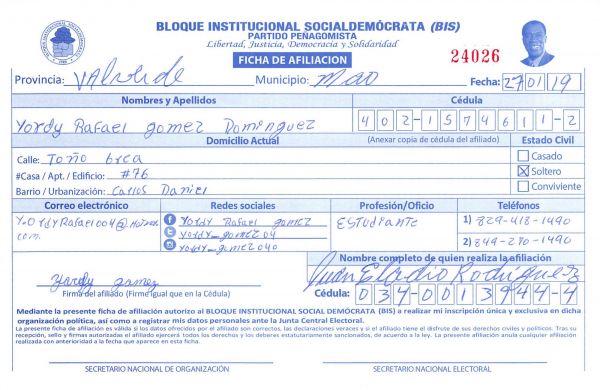 BLOQUE INSTITUCIONAL SOCIALDEMÓCRATA (BIS)
PARTIDO PEÑAGOMISTA
Libertad, Justicia, Democracia y Solidaridad
FICHA DE AFILIACION
24026
Provincia: Valverde Municipio: Mao Fecha: 27/01/19
Nombres y Apellidos
Cédula
Yordy Rafael gomez Dominguez
402-1574611-2
Domicilio Actual
(Anexar copia de cédula del afiliado)
Estado Civil
Calle: Toño brea
Casado
#Casa / Apt. / Edificio: #76
Soltero
Barrio / Urbanización: Carlos Daniel
Conviviente
Correo electrónico
Redes sociales
Profesión/Oficio
Teléfonos
YordyRafael004@Hotmail.
com.
Yordy Rafael gomez
yordy_gomez04
yordy_gomez040
Estudiante
1) 829-418-1490
2) 849-270-1490
Nombre completo de quien realiza la afiliación
Juan Eladio Rodriguez
Yordy gomez
Firma del afiliado (Firme igual que en la Cédula)
Cédula: 034-0013944-4
Mediante la presente ficha de afiliación autorizo al BLOQUE INSTITUCIONAL SOCIAL DEMÓCRATA (BIS) a realizar mi inscripción única y exclusiva en dicha
organización política, así como a registrar mis datos personales ante la Junta Central Electoral.
La presente ficha de afiliación es válida si los datos ofrecidos por el afiliado son correctos, las declaraciones veraces y si el afiliado tiene el disfrute de sus derechos civiles y políticos. Tras su
recepción, sello y firmas autorizadas el afiliado ejercerá todos los derechos y los deberes estatutariamente sancionados, de acuerdo a la ley. La presente afiliación anula cualquier afiliación
realizada con anterioridad a la fecha que aparece en esta ficha.
SECRETARIO NACIONAL DE ORGANIZACIÓN
SECRETARIO NACIONAL ELECTORAL